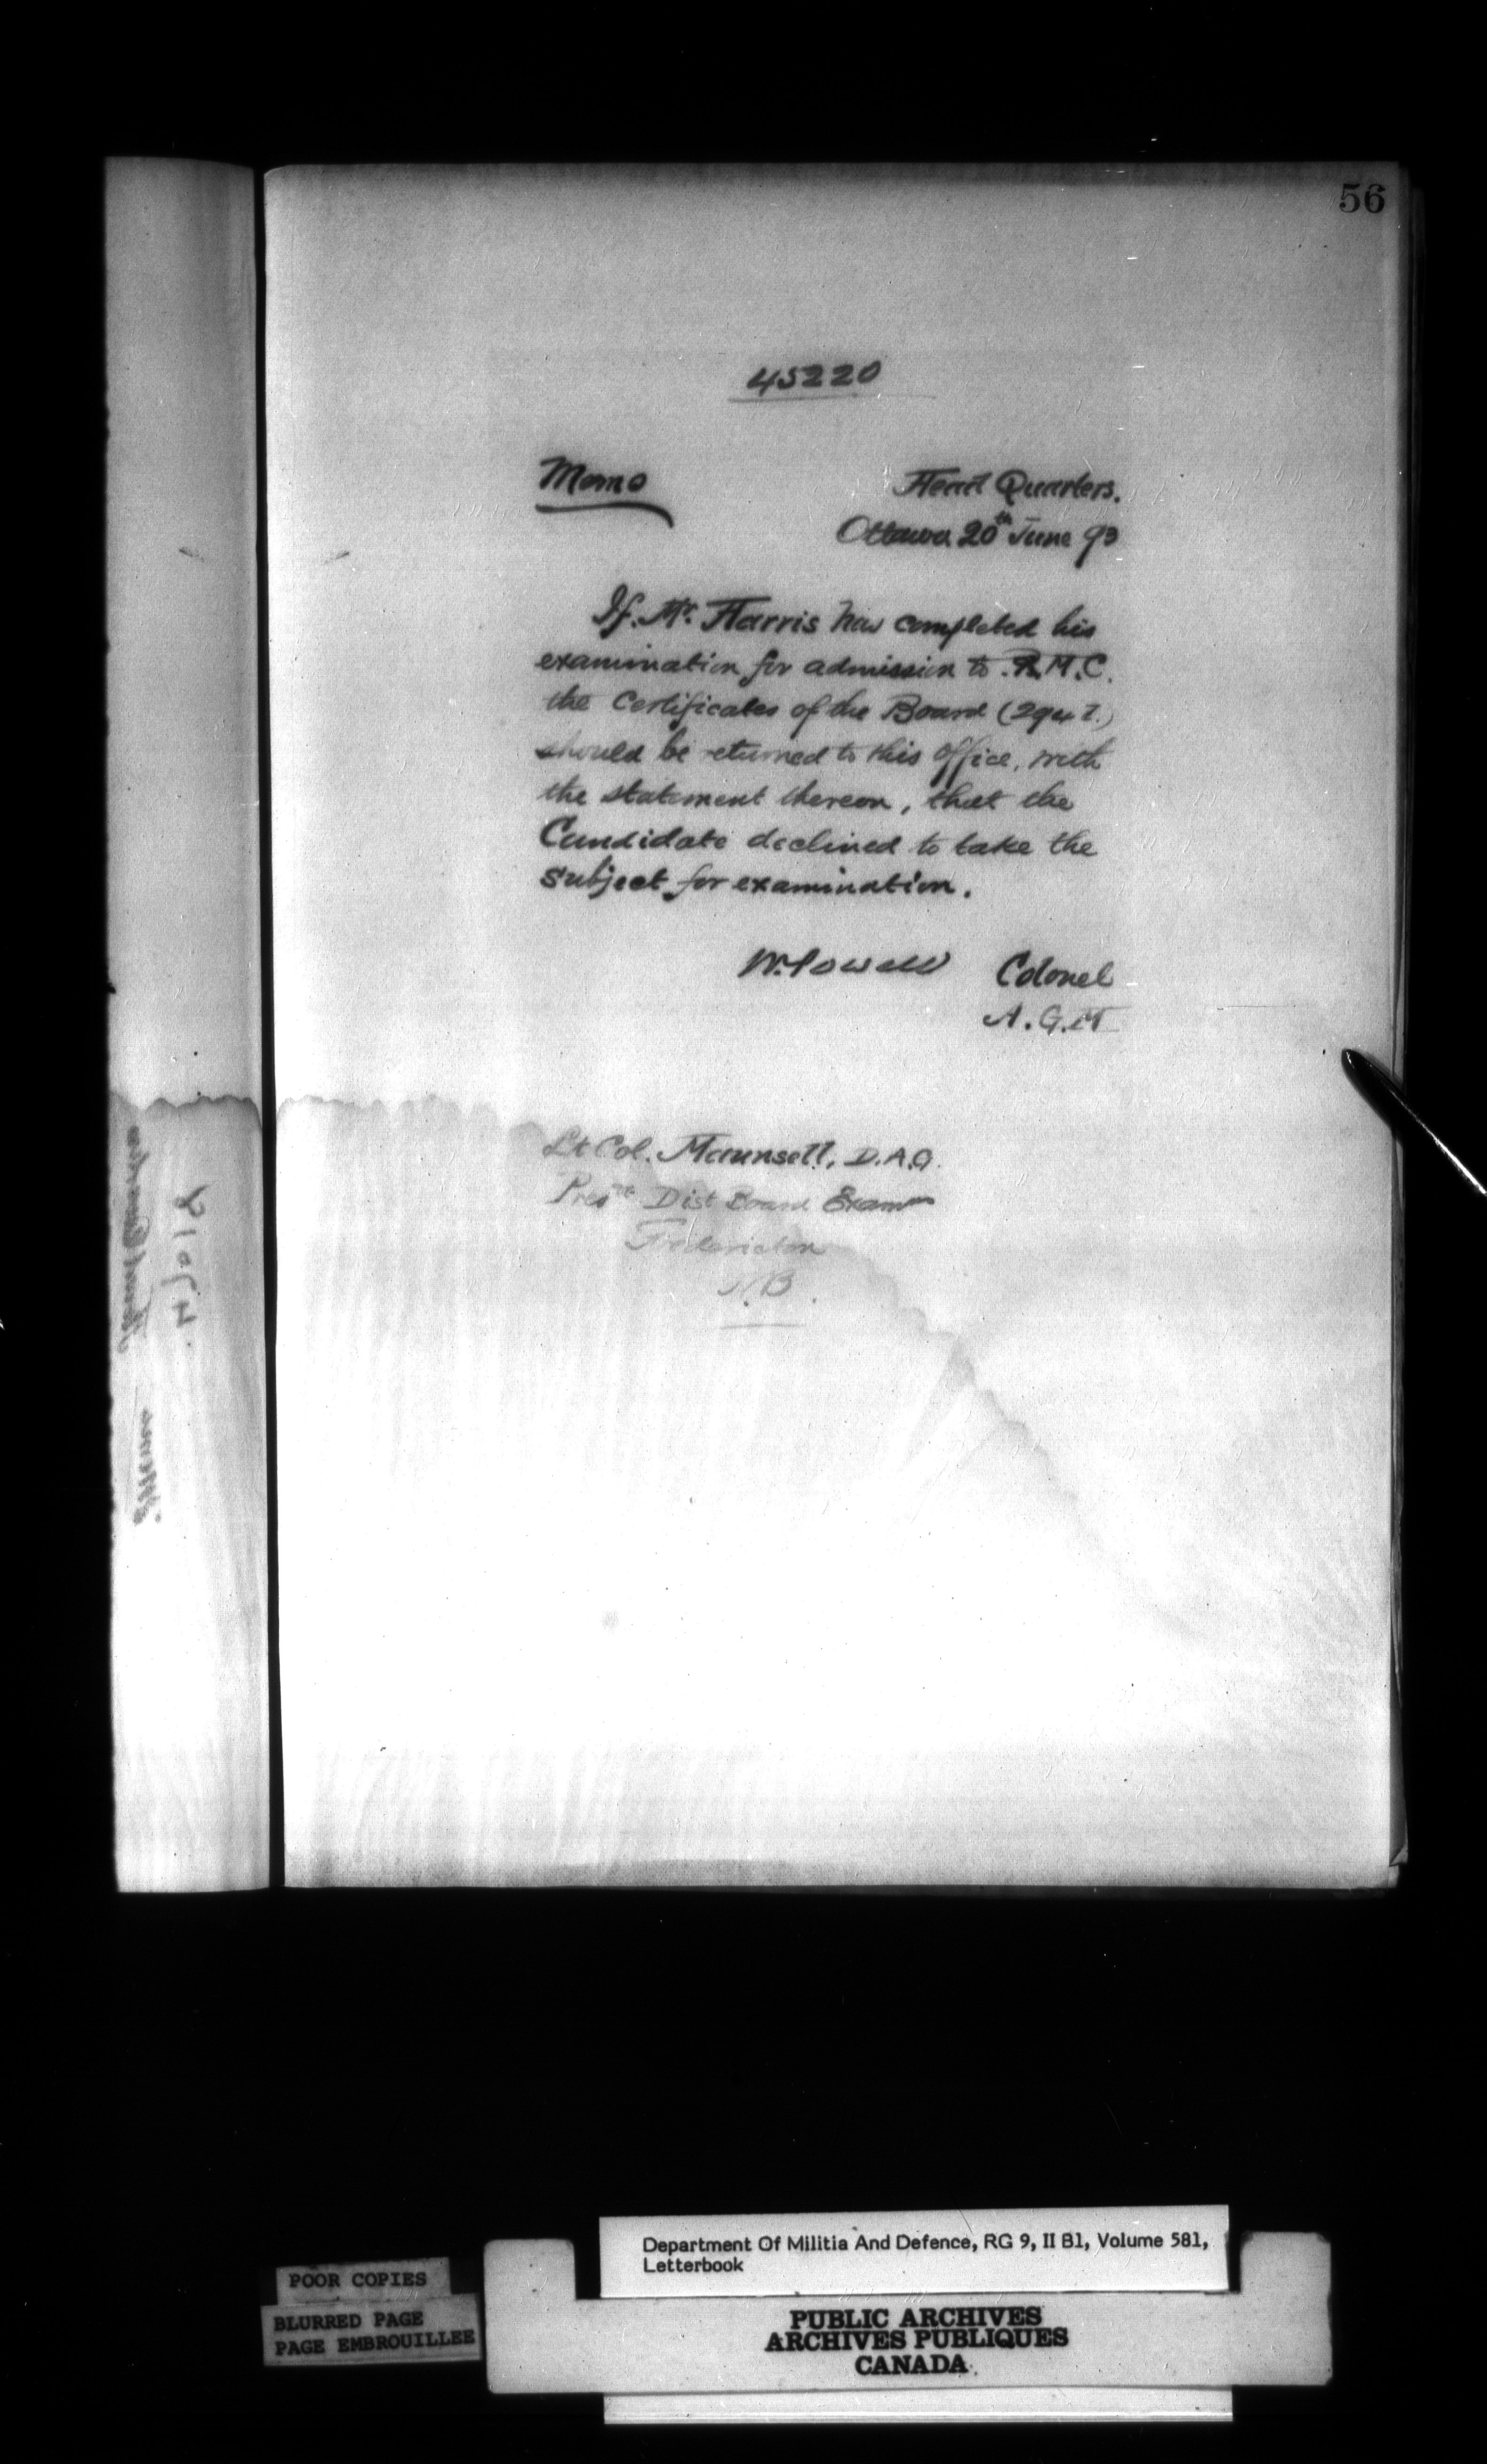 56
45220
Memo
Head Quarters.
Ottawa 20th June 93
If Mr. Harris has completed his
examination for admission to R.M.C.
the Certificates of the Board
should be returned to this office, with
the statement thereon, that the
Candidate declined to take the
subject for examination.
W. Powell Colonel
A.G.M
Lt Col. Maunsell, D.A.G.
Presdt Dist Board Examn
Fredericton
N.B.
POOR COPIES
BLURRED PAGE
PAGE EMBROUILLEE
Department Of Militia And Defence, RG 9, II B1, Volume 581,
Letterbook
PUBLIC ARCHIVES
ARCHIVES PUBLIQUES
CANADA